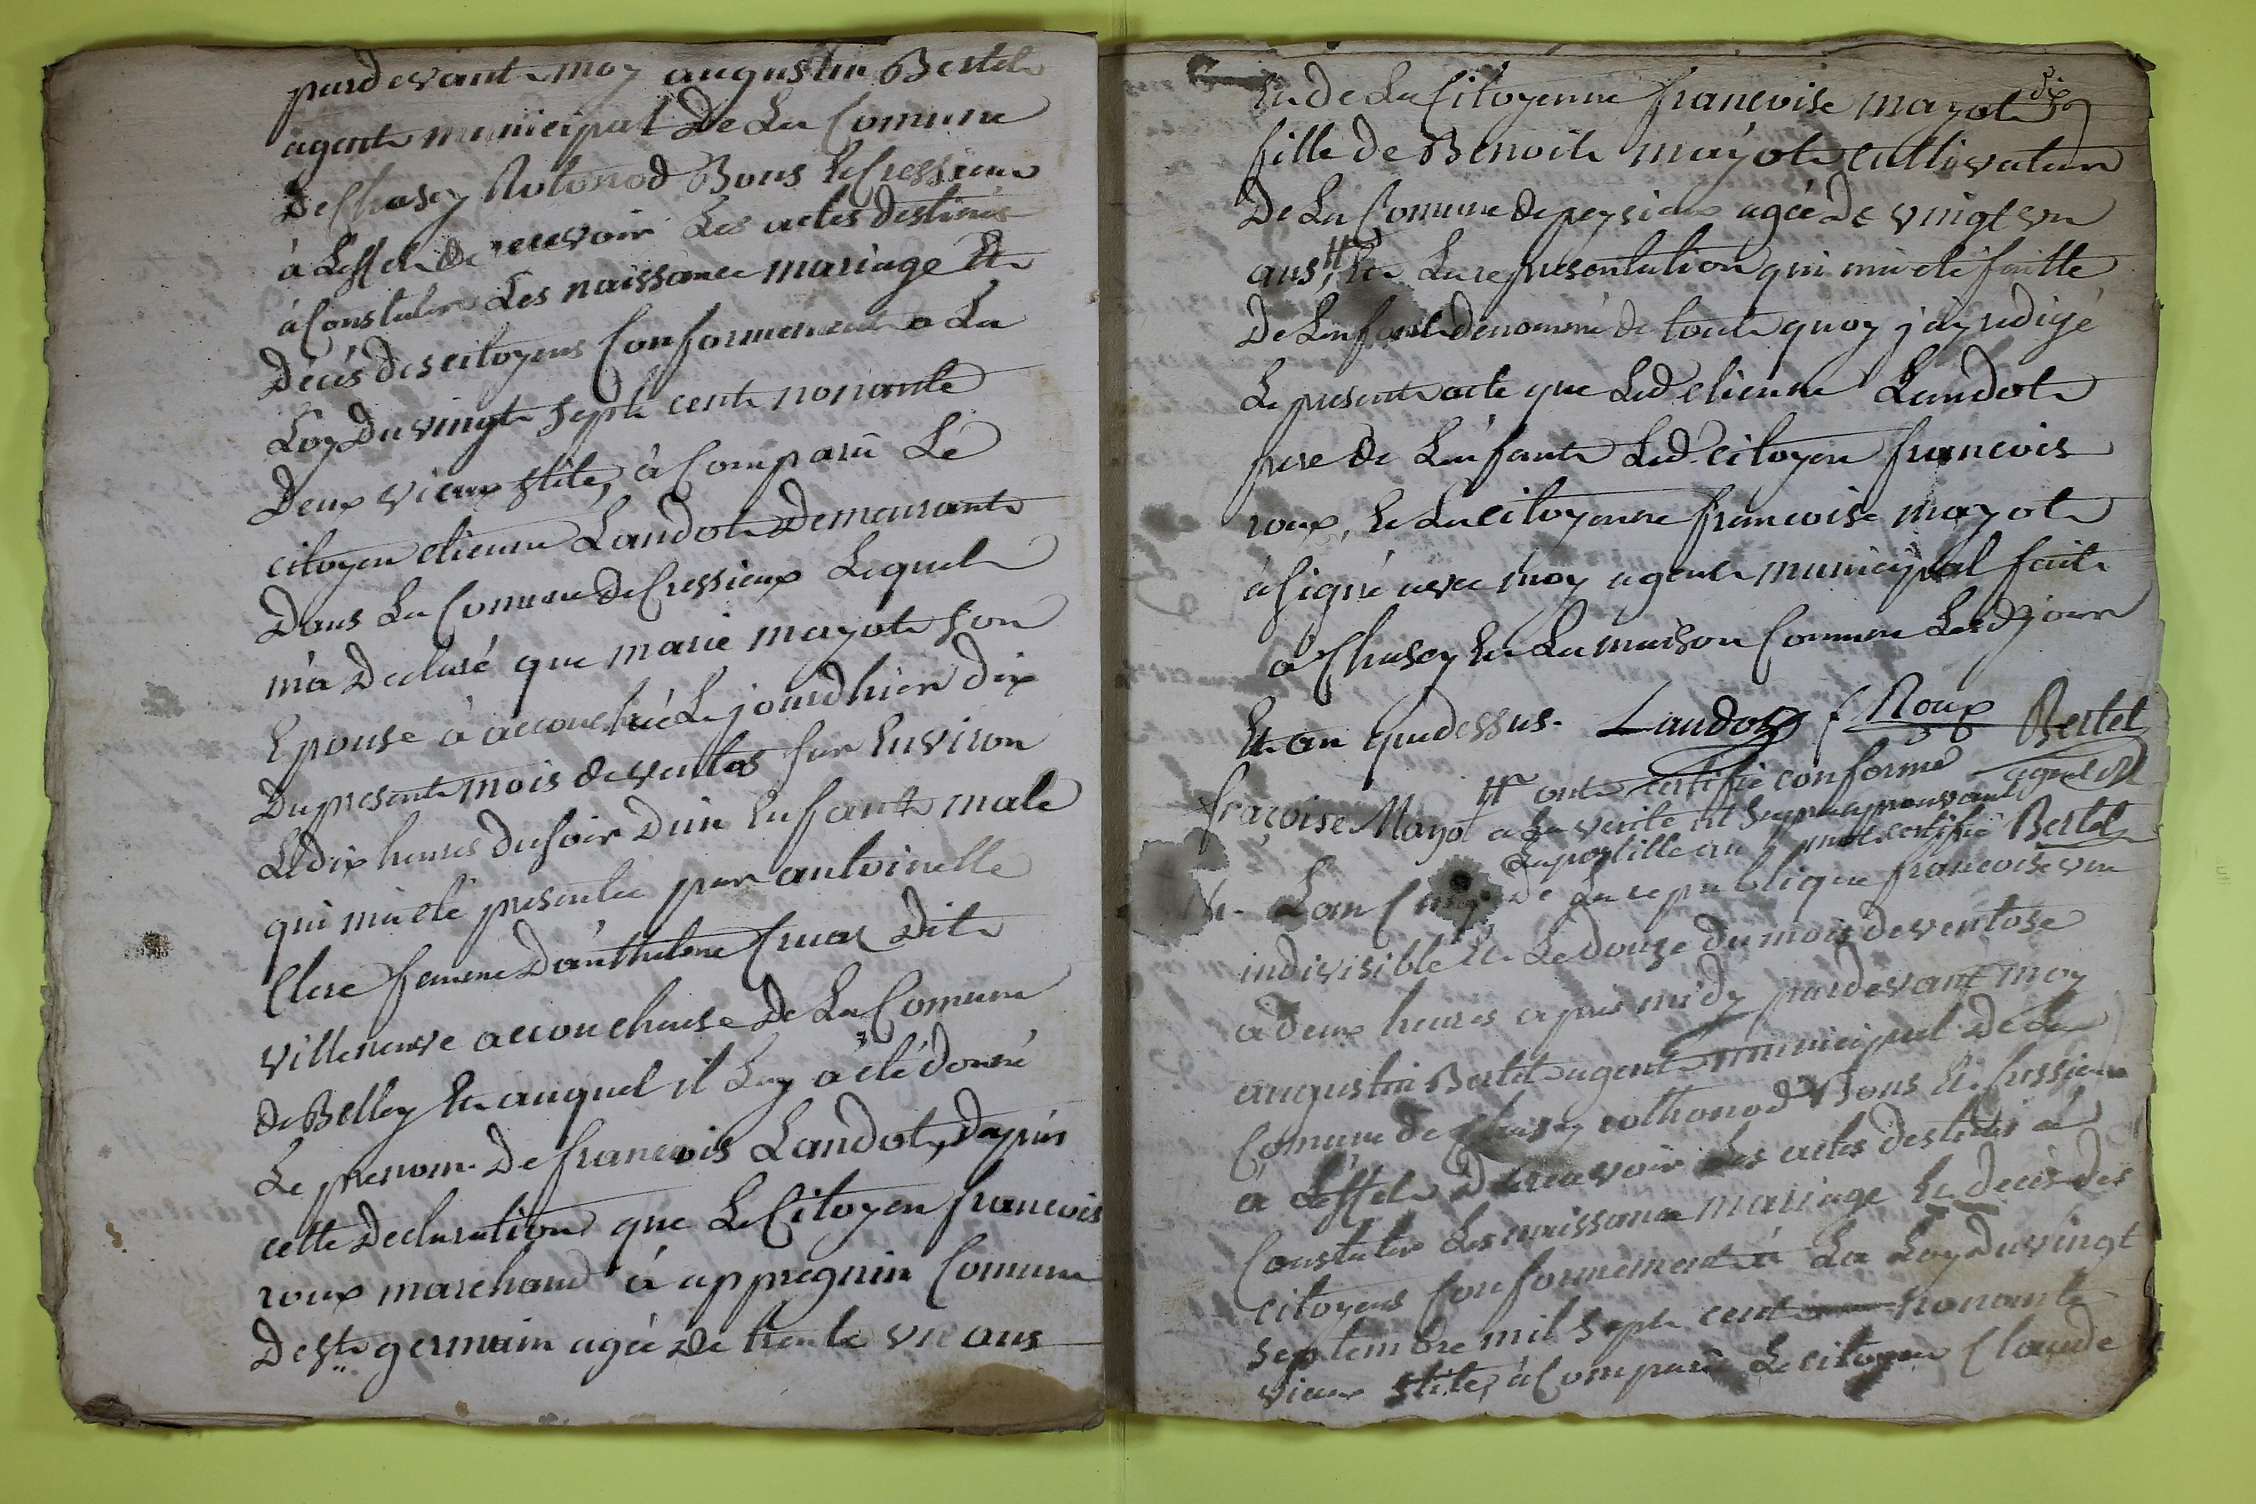 pardevant moy augustin Bertet
agent municipal De La Comune
De Chasey Rotonod Bons Et Cressieux
à Leffet de recevoir Les actes destinés
à Constater Les naissance mariage Et
Décés des citoyens Conformement a La
Loy Du vingt sept cent nonante
Deux vieux stile, à Comparu Le
citoyen etienne Landot Demeurant
Dans La Comune de Cressieux Lequel
m'a Declaré que marie mayot son
Epouse à accouchée Le jourdhier dix
Du present mois de ventos sur Environ
Le dix heures du soir D'un Enfant male
qui m'a été presentée par antoinette
Clere femme D'anthelme Cruas Dit
villeneuve accoucheuse De La Comune
de Belley Et auquel il Luy à été donné
Le prenom De francois Landot, Dapres
cette Declaration que Le Citoyen francois
roux marchand à appregnin Comune
De st germain agée de trente un ans
dix
Et de La Citoyenne francoise mayot
fille de Benoit mayot cultivateur
De La Comune de peyzieux agée De vingt un
ans, Et La representation qui m'a eté faitte
De Lenfant denommé de tout quoy j'ay redigé
Le present acte que Led etienne Landot
pere de Lenfant Led citoyen francois
roux, Et La citoyenne francoise mayot
à signé avec moy agent municipal fait
à Chasey En La maison Comune Lesd jour
Et an que dessus. Landoz f Roux Bertet
agent
ont certifié conforme
fraçoise Mayot a La verité et approuvant
Lapostille au certifié Bertet
Lan Cinq De La republique francoise une
indivisible Et Le douze du mois de ventose
a deux heures apres midy pardevant moy
augustin Bertet agent municipal De La
Comune de Chasey rothonod Bons Et Cressieux
a Leffet De recevoir Les actes destinés a
Constater Les naissance mariage Et decés des
citoyens Conformement à La Loy Du vingt
septembre mil sept cent nonante
vieux stile, à Comparu Le citoyen Claude